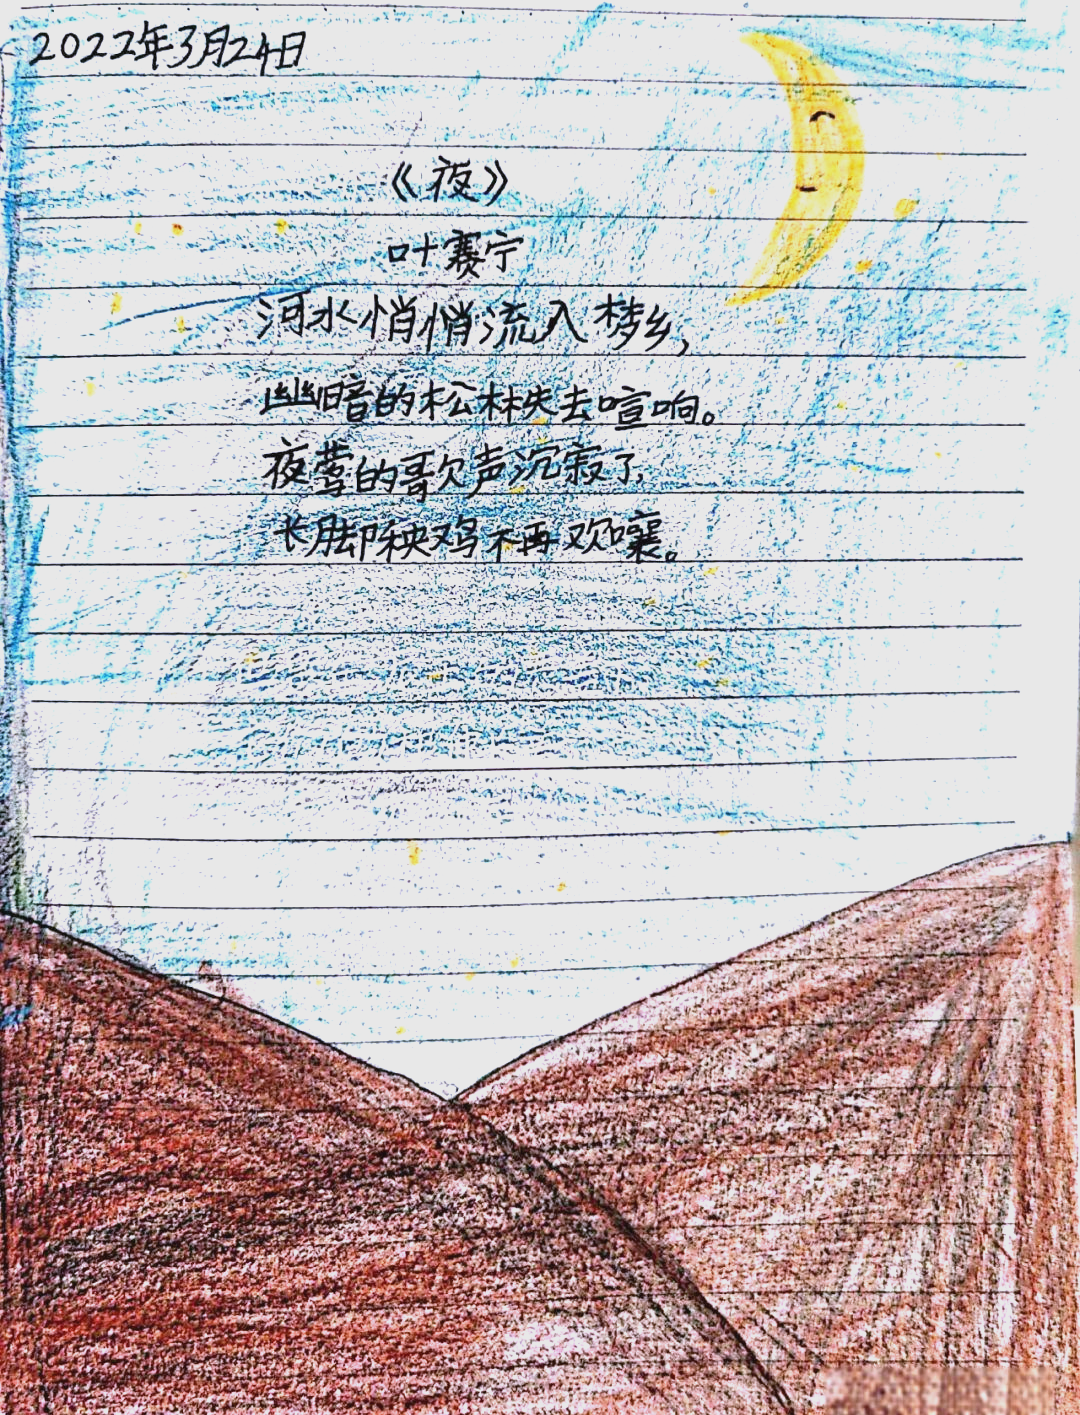 2022年3月24日
《夜》
叶赛宁
河水悄悄流入梦乡,
幽暗的松林失去喧响。
夜莺的歌声沉寂了,
长脚秧鸡不再欢嚷。